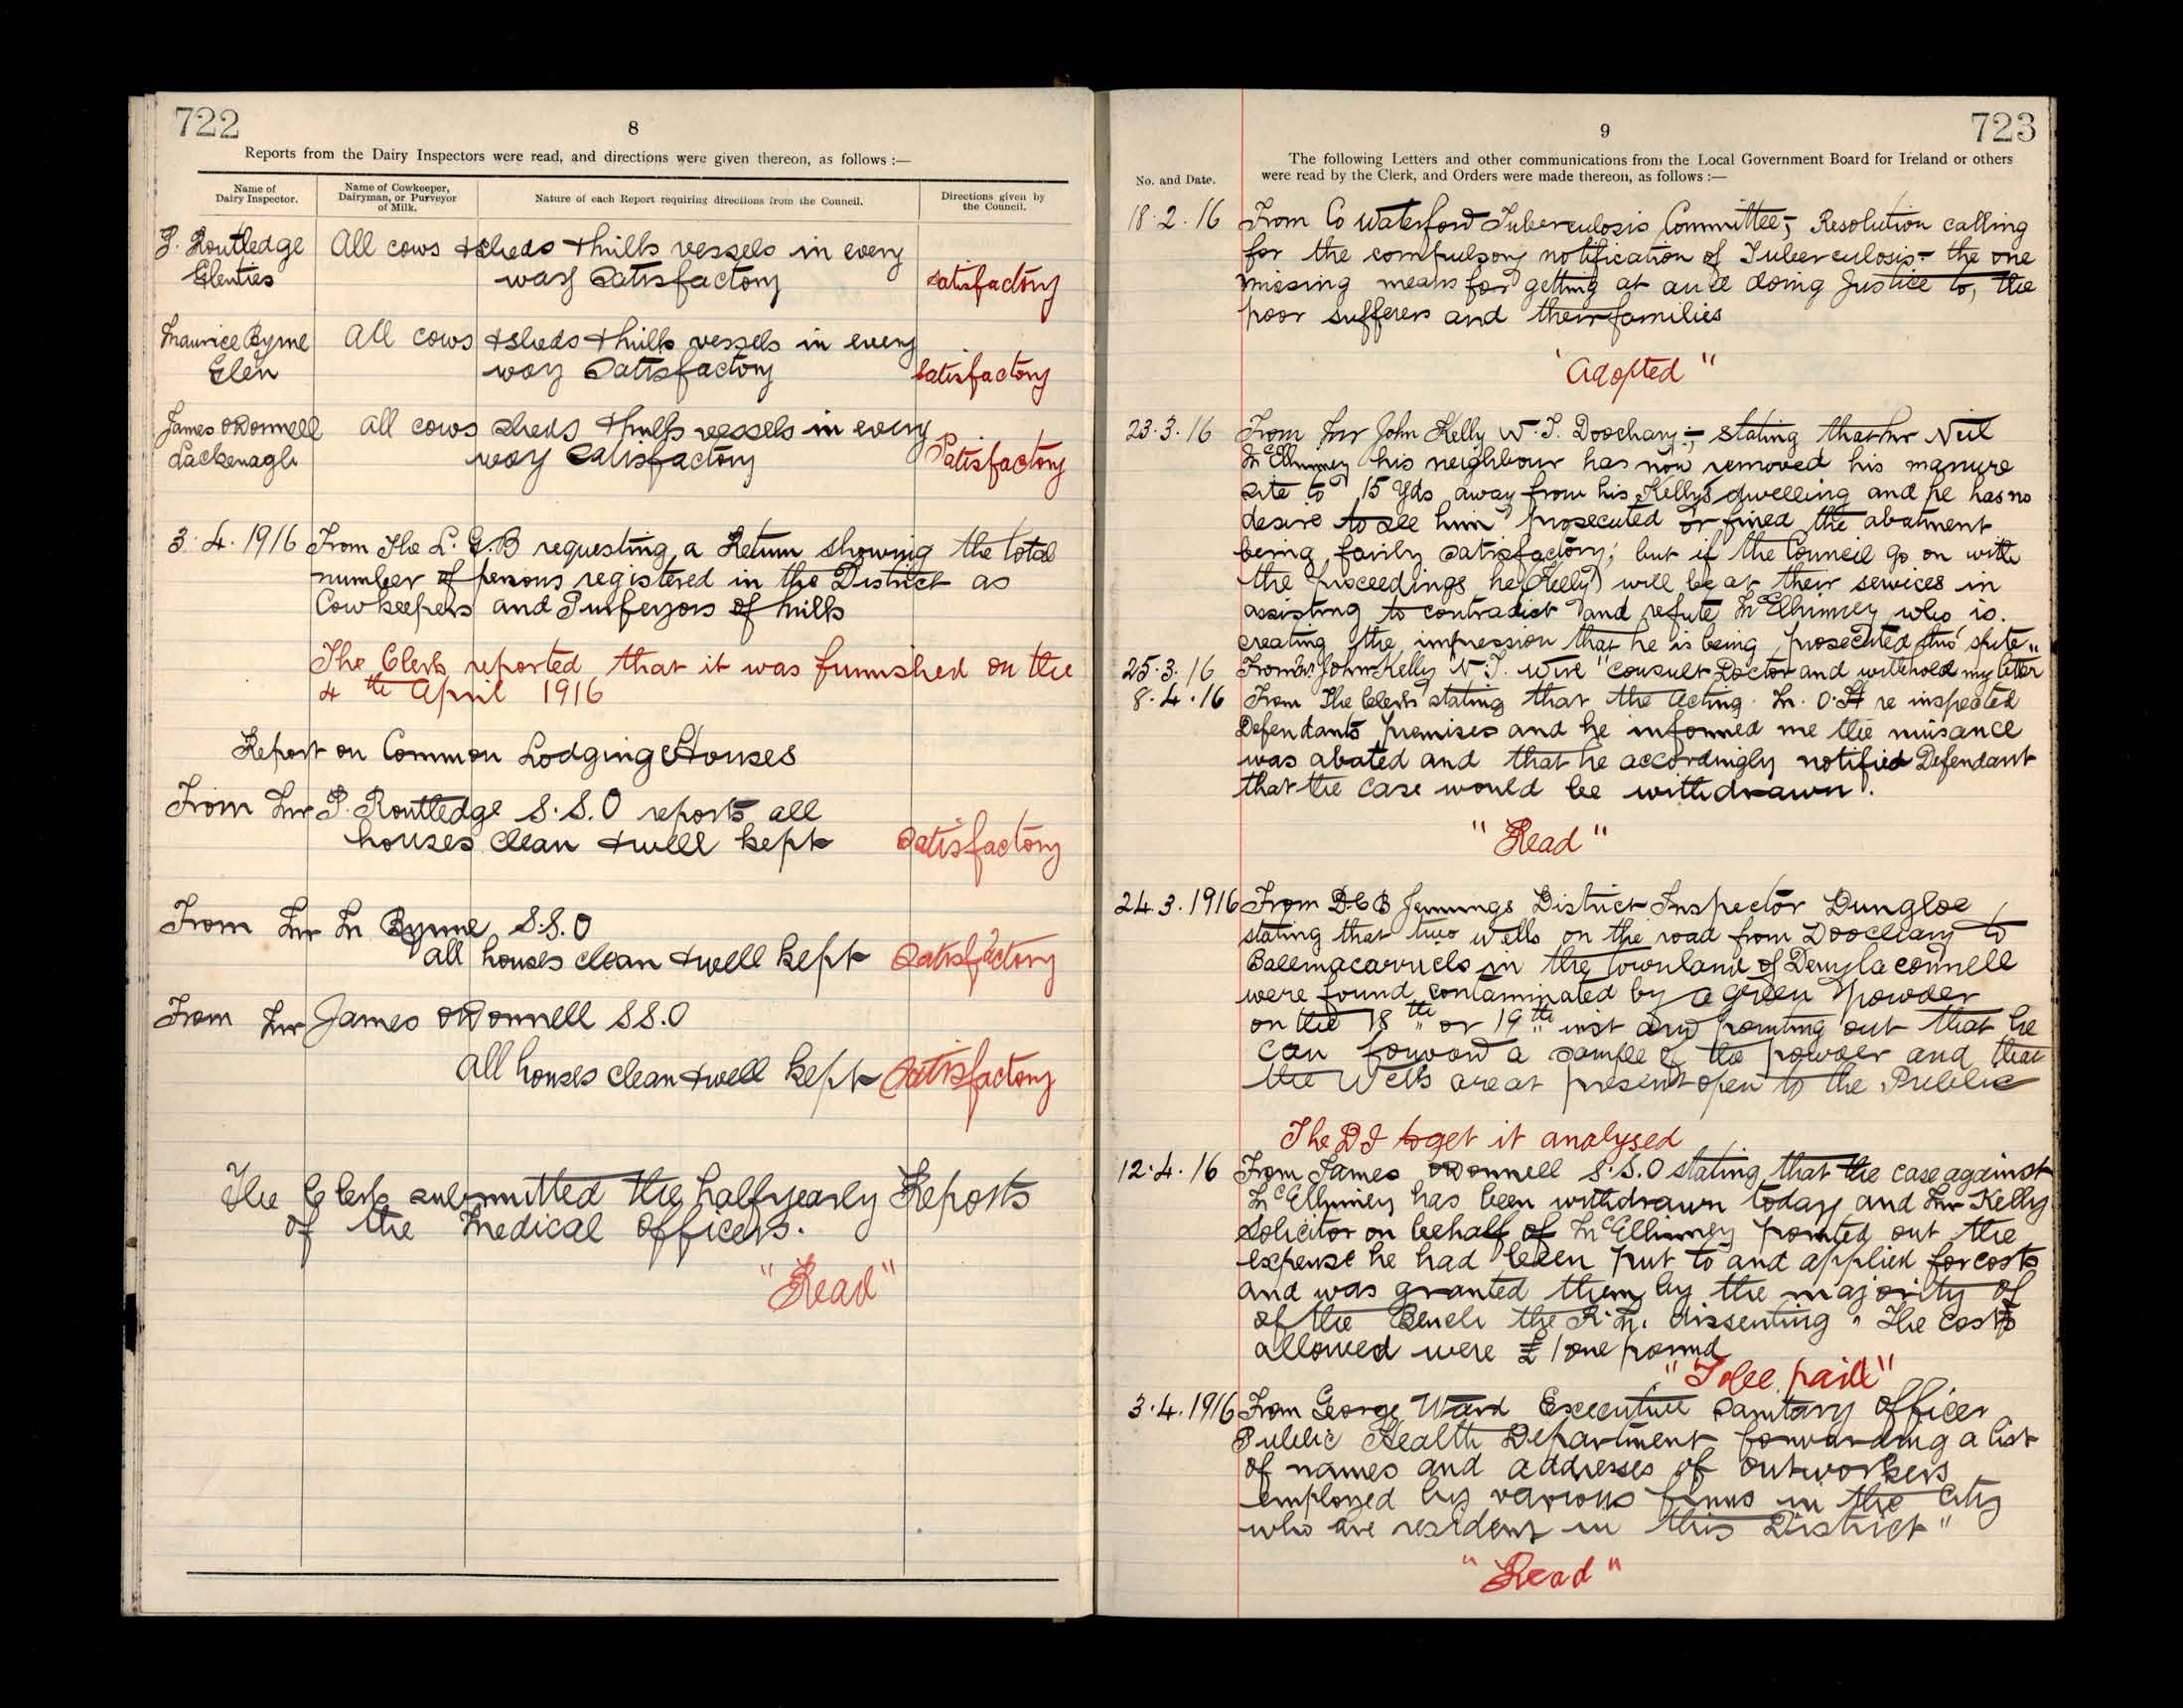 722
8
Reports from the Dairy Inspectors were read, and directions were given thereon, as follows :—
Name of Dairy Inspector.
Name of Cowkeeper, Dairyman, or Purveyor of Milk.
Nature of each Report requiring directions from the Council.
Directions given by the Council.
P. Routledge All cows & sheds & milk vessels in every
Glenties way satisfactory satisfactory
Maurice Byrne All cows & sheds & milk vessels in every
Glen way satisfactory satisfactory
James O'Donnell all cows sheds & milk vessels in every
Lackenagh way satisfactory Satisfactory
3.4.1916 From The L.G.B requesting a Return showing the total
number of persons registered in the District as
Cowkeepers and Purveyors of milk
The Clerk reported that it was furnished on the
4th April 1916
Report on Common Lodging Houses
From Mr P. Routledge S.S.O reports all
houses clean & well kept Satisfactory
From Mr M Byrne S.S.O
all houses clean & well kept Satisfactory
From Mr James O'Donnell S S.O
all houses clean & well kept Satisfactory
The Clerk submitted the half yearly Reports
of the Medical Officers.
"Read"
723
9
The following Letters and other communications from the Local Government Board for Ireland or others
were read by the Clerk, and Orders were made thereon, as follows :—
No. and Date.
18.2.16 From Co Waterford Tuberculosis Committee;- Resolution calling
for the compulsory notification of Tuberculosis - the one
missing means for getting at and doing Justice to, the
poor sufferers and their families
"Adopted"
23.3.16 From Mr John Kelly N.T. Doochary :- stating that Mr Neil
McElhinney his neighbour has now removed his manure
site to 15 Yds away from his Kelly's dwelling and he has no
desire to see him prosecuted or fined the abatment
being fairly satisfactory; but if the Council go on with
the proceedings he (Kelly) will be at their services in
assisting to contradict and refute McElhinney who is
creating the impression that he is being prosecuted thro' spite"
25.3.16 From Mr John Kelly N.T. Wire "Consult Doctor and withold my letter
8.4.16 From The Clerk stating that the acting M.O.H re inspected
Defendants premises and he informed me the nuisance
was abated and that he accordingly notified Defendant
that the case would be withdrawn.
"Read"
24.3.1916 From D C B Jennings District Inspector Dungloe
stating that two wells on the road from Doochary to
in the townland of Derrylaconnell
were found contaminated by a green powder
on the 18th or 19th inst and pointing out that he
can forward a sample of the powder and that
the Wells are at present open to the Public
The D I to get it analysed
12.4.16 From James O'Donnell S.S.O stating that the case against
McElhinney has been withdrawn today and Mr Kelly
Solicitor on behalf of McElhinney pointed out the
expense he had been put to and applied for costs
and was granted them by the majority of
of the Bench the R.M. dissenting. The costs
allowed were £1 one pound
"To be paid"
3.4.1916 From George Ward Executive Sanitary Officer
Public Health Department forwarding a list
of names and addresses of outworkers
employed by various firms in the City
who are resident in this District"
"Read"